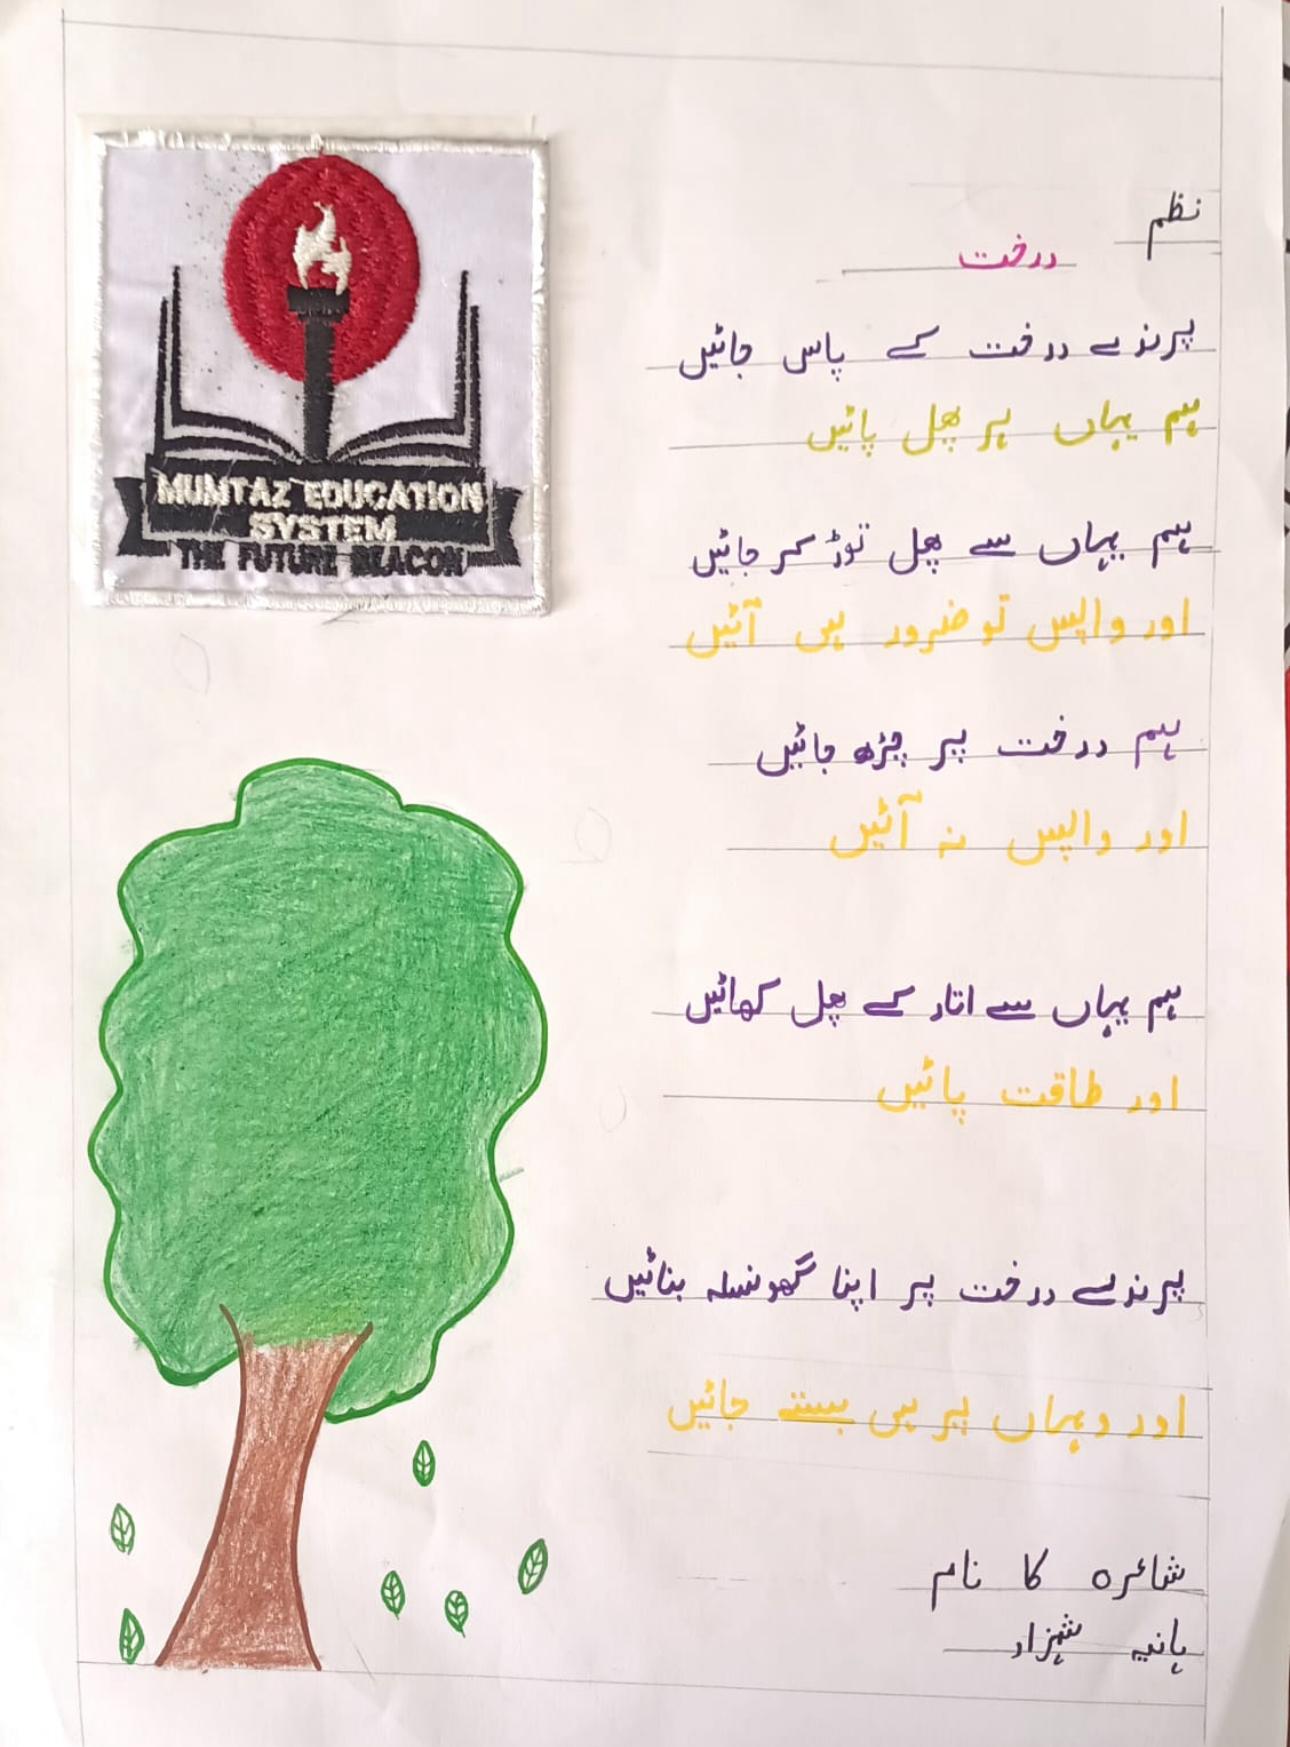 MUMTAZ EDUCATION
SYSTEM
THE FUTURE BEACON
نظم
درخت
پرندے درخت کے پاس جائیں
ہم یہاں ہر پھل پائیں
ہم یہاں سے پھل توڑ کر جائیں
اور واپس تو ضرور ہی آئیں
ہم درخت پر چڑھ جائیں
اور واپس نہ آئیں
ہم یہاں سے اتار کے پھل کھائیں
اور طاقت پائیں
پرندے درخت پر اپنا گھونسلہ بنائیں
اور وہاں پر ہی بستے جائیں
شاعرہ کا نام
ہانیہ شہزاد